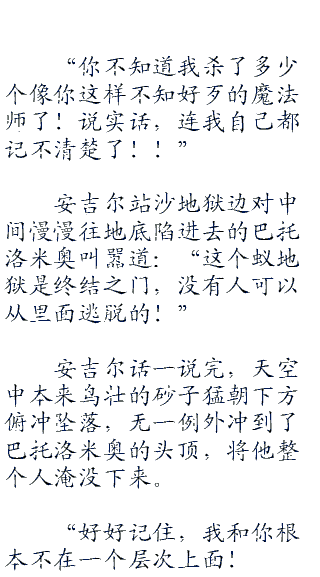 “你不知道我杀了多少
个像你这样不知好歹的魔法
师了！说实话，连我自己都
记不清楚了！！”
安吉尔站沙地狱边对中
间慢慢往地底陷进去的巴托
洛米奥叫嚣道：“这个蚁地
狱是终结之门，没有人可以
从里面逃脱的！”
安吉尔话一说完，天空
中本来乌壮的砂子猛朝下方
俯冲坠落，无一例外冲到了
巴托洛米奥的头顶，将他整
个人淹没下来。
“好好记住，我和你根
本不在一个层次上面！